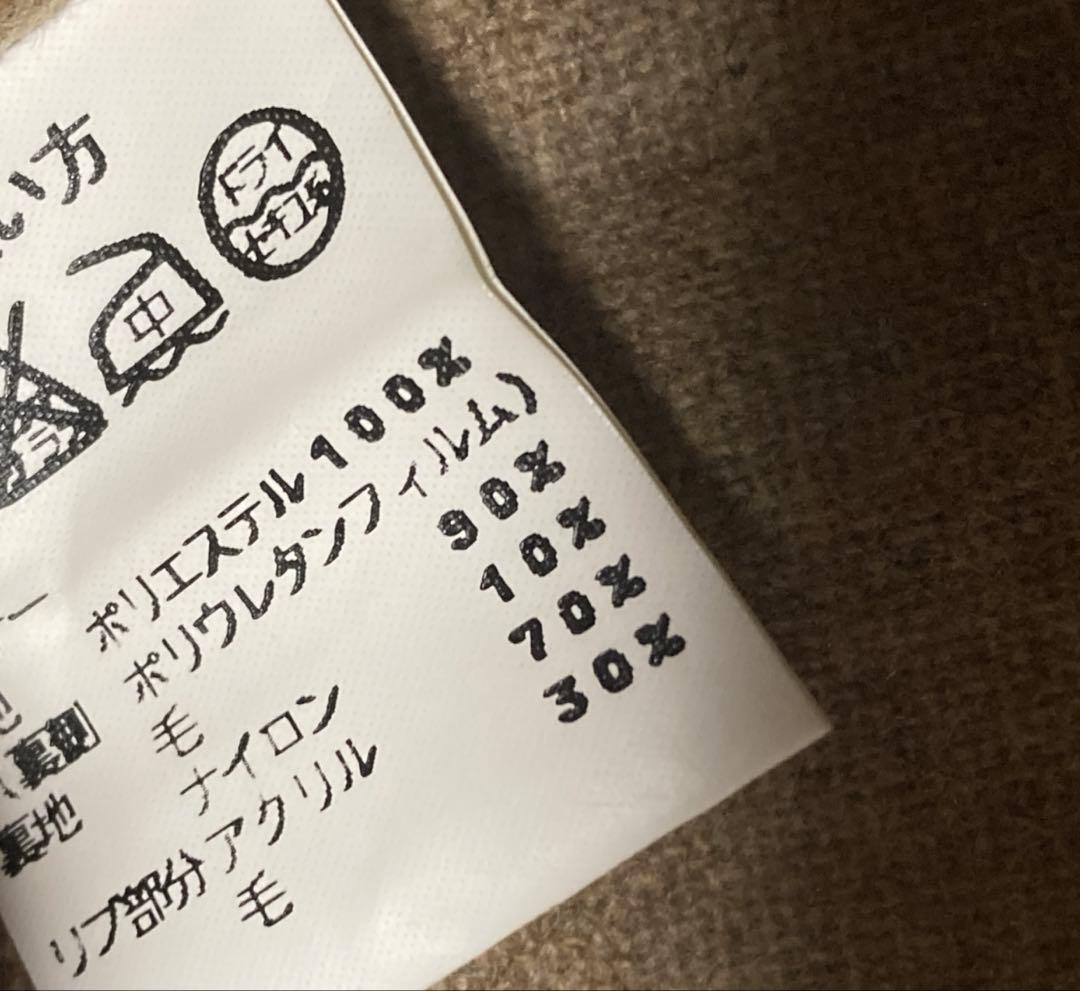 い方
ドライ
セキユ系
中
エンソサラシ
ポリエステル100%
(裏側 ポリウレタンフィルム)
裏地 毛 90%
ナイロン 10%
リブ部分 アクリル 70%
毛 30%